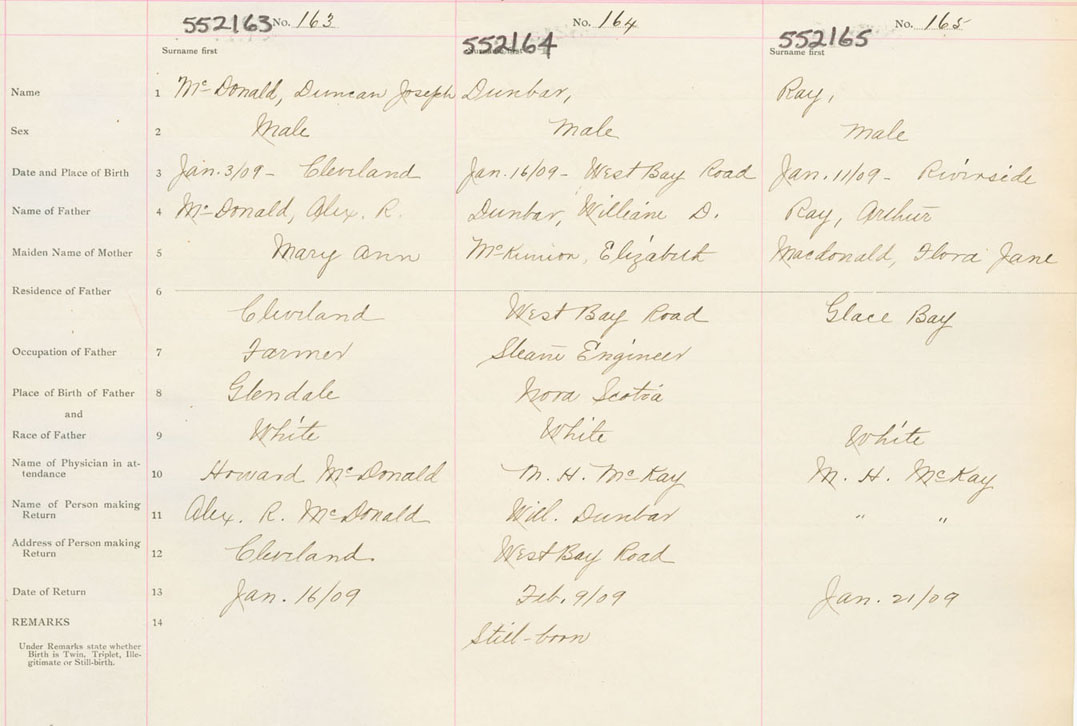 552163 No. 163 552164 No. 164 552165 No. 165
Surname first Surname first Surname first
Name 1 McDonald, Duncan Joseph Dunbar, Ray,
Sex 2 Male Male Male
Date and Place of Birth 3 Jan. 3/09 - Cleveland Jan. 16/09 - West Bay Road Jan. 11/09 - Riverside
Name of Father 4 McDonald, Alex. R. Dunbar, William D. Ray, Arthur
Maiden Name of Mother 5 Mary Ann McKinnon, Elizabeth Macdonald, Flora Jane
Residence of Father 6
Cleveland West Bay Road Glace Bay
Occupation of Father 7 Farmer Steam Engineer
Place of Birth of Father 8 Glendale Nova Scotia
and
Race of Father 9 White White White
Name of Physician in at-
tendance 10 Howard McDonald M. H. McKay M. H. McKay
Name of Person making
Return 11 Alex. R. McDonald Will. Dunbar " "
Address of Person making
Return 12 Cleveland. West Bay Road
Date of Return 13 Jan. 16/09 Feb. 9/09 Jan. 21/09
REMARKS 14
Still-born
Under Remarks state whether
Birth is Twin, Triplet, Ille-
gitimate or Still-birth.